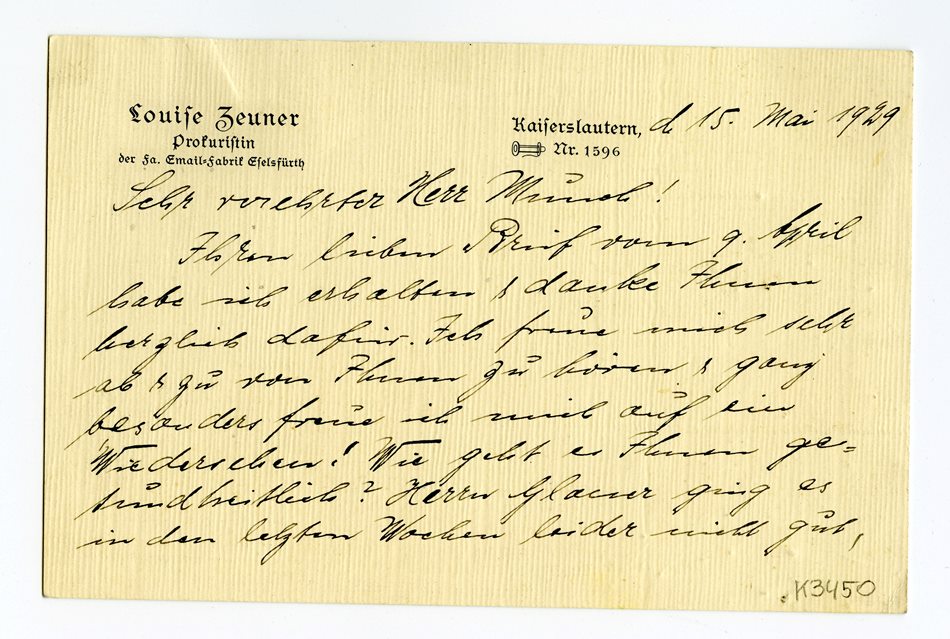 Louise Zeuner
Prokuristin
der Fa. Email-Fabrik Eselsfürth
Kaiserslautern, d 15. Mai 1929
Nr. 1596
Sehr verehrter Herr Munch!
Ihren lieben Brief vom 9. April
habe ich erhalten & danke Ihnen
herzlich dafür. Ich freue mich sehr
ab & zu von Ihnen zu hören & ganz
besonders freue ich mich auf ein
Wiedersehen! Wie geht es Ihnen ge=
sundheitlich? Herrn Glaeser ging es
in den letzten Wochen leider nicht gut,
K3450